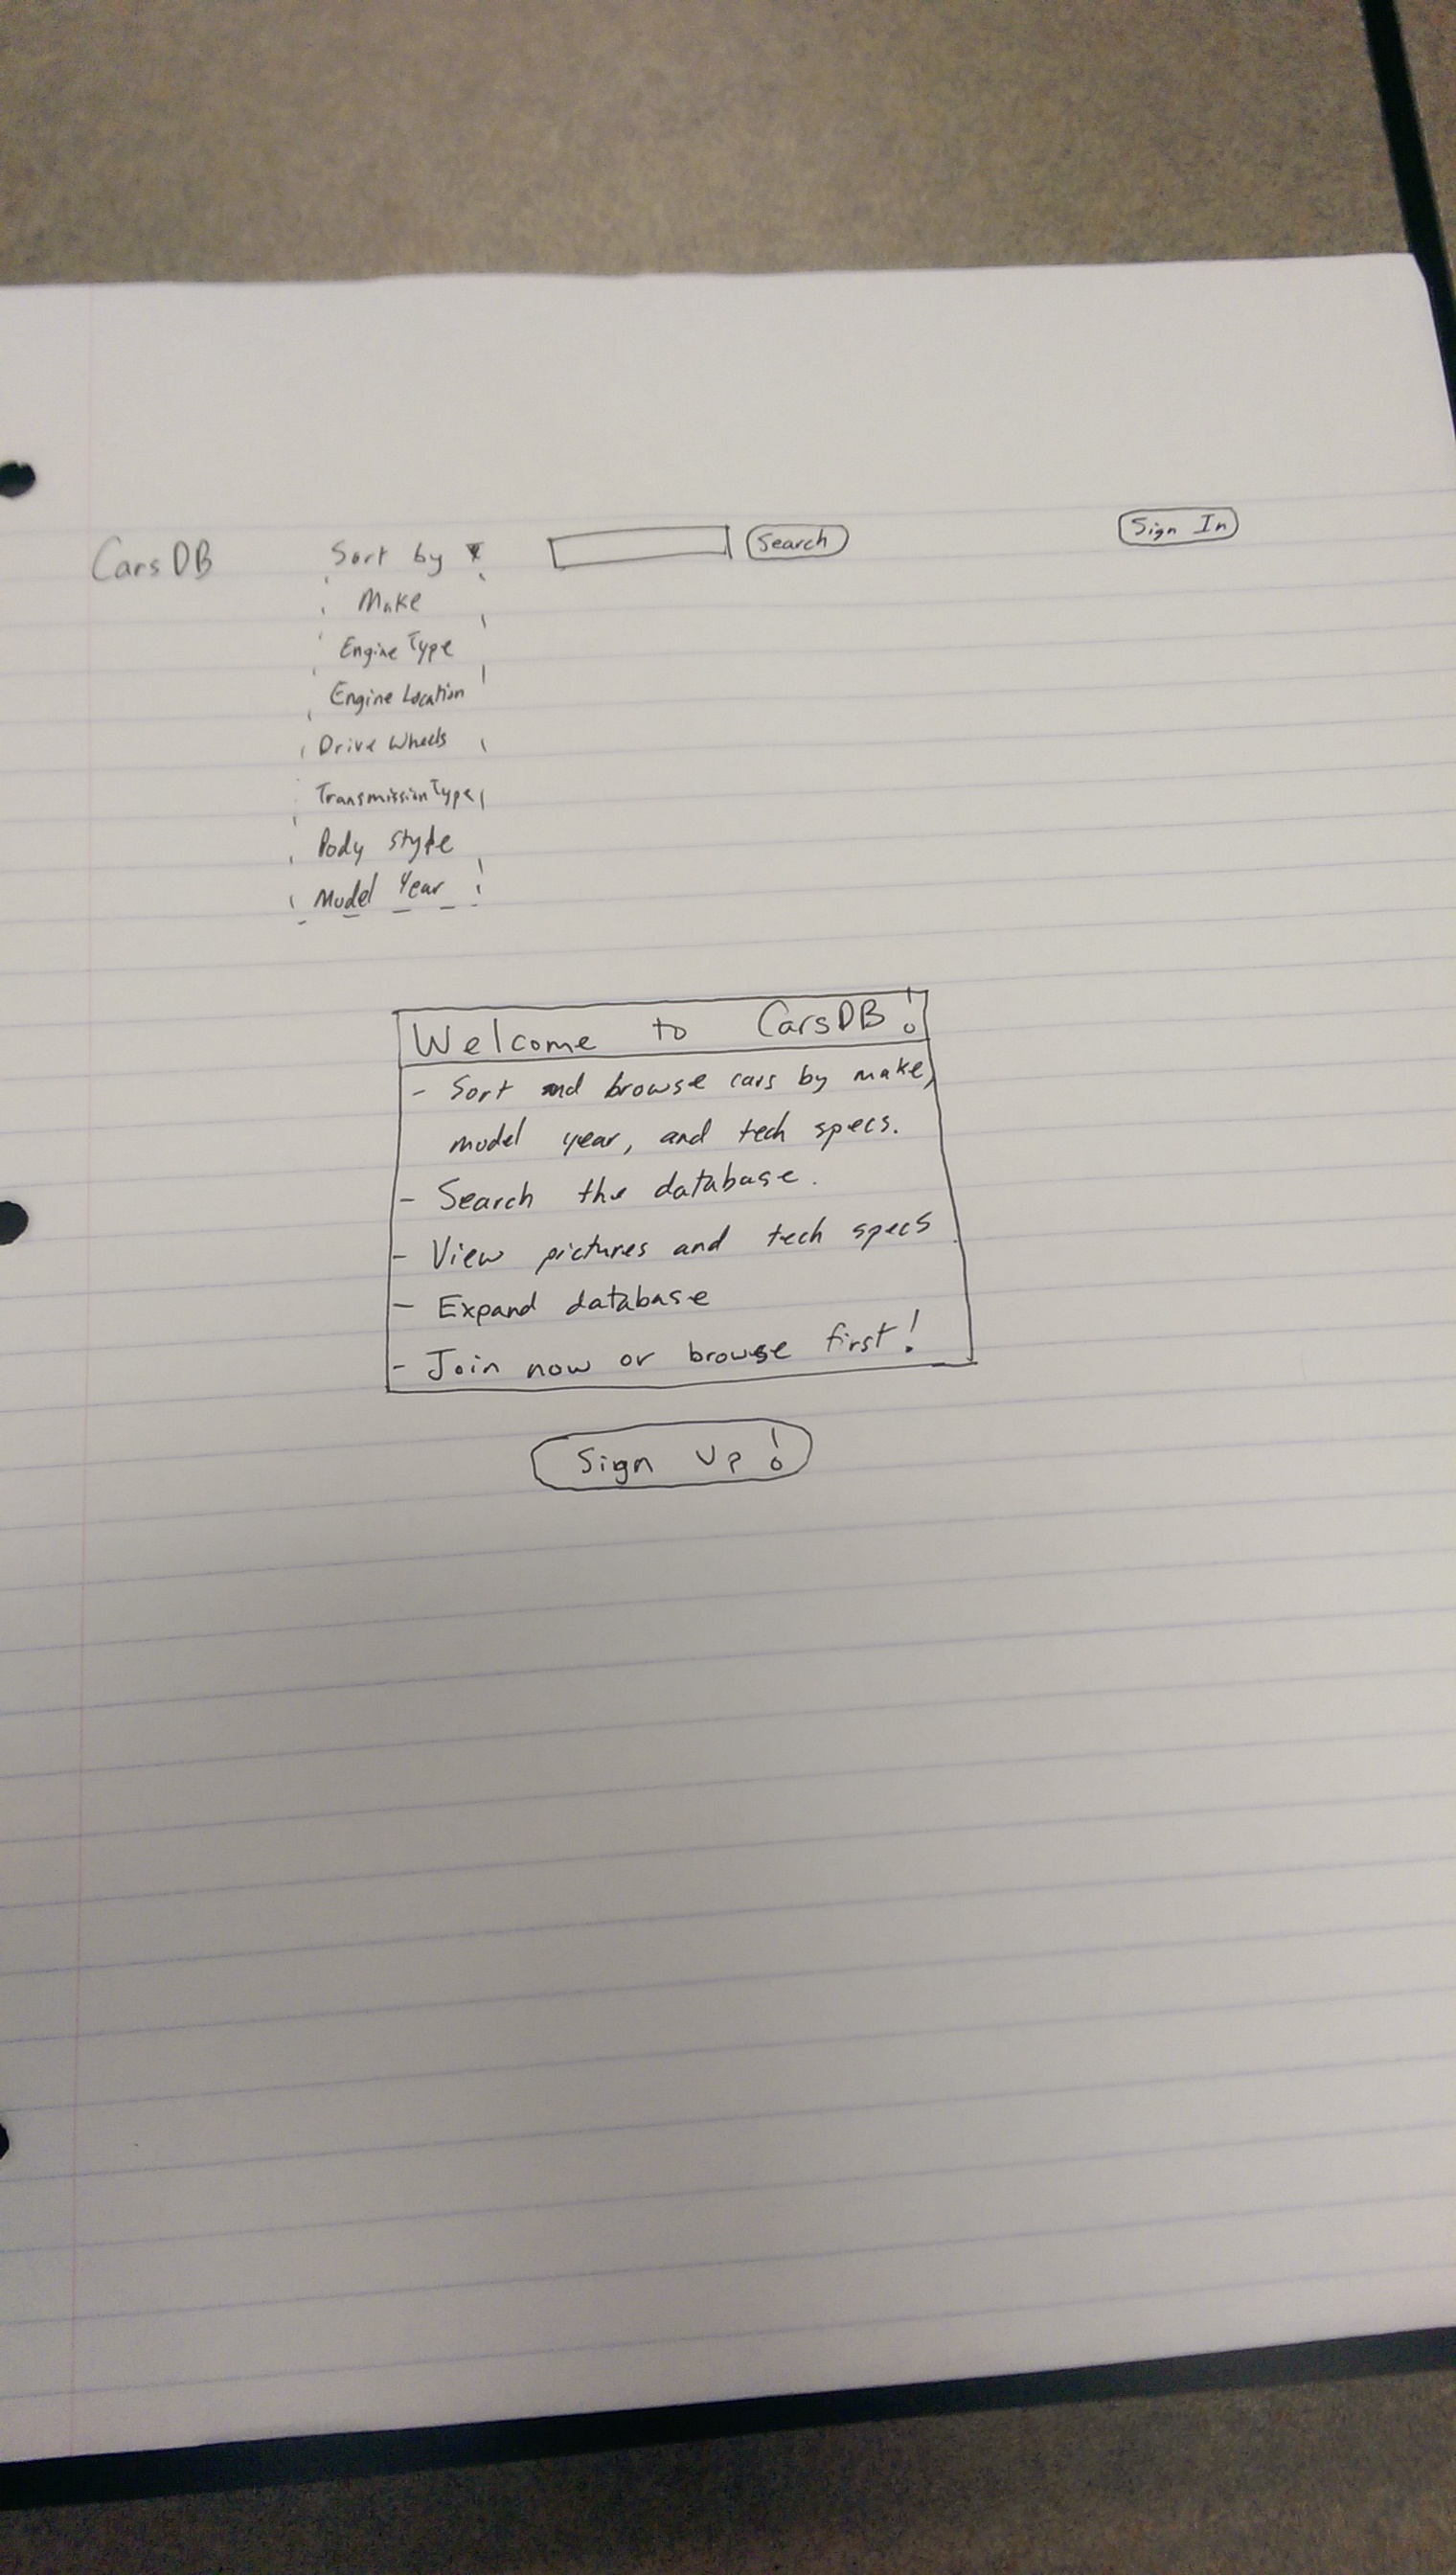 CarsDB Sort by ▼ Search Sign In
Make
Engine Type
Engine Location
Drive Wheels
Transmission Type
Body Style
Model Year
Welcome to CarsDB!
- Sort and browse cars by make,
model year, and tech specs.
- Search the database.
- View pictures and tech specs.
- Expand database
- Join now or browse first!
Sign Up!